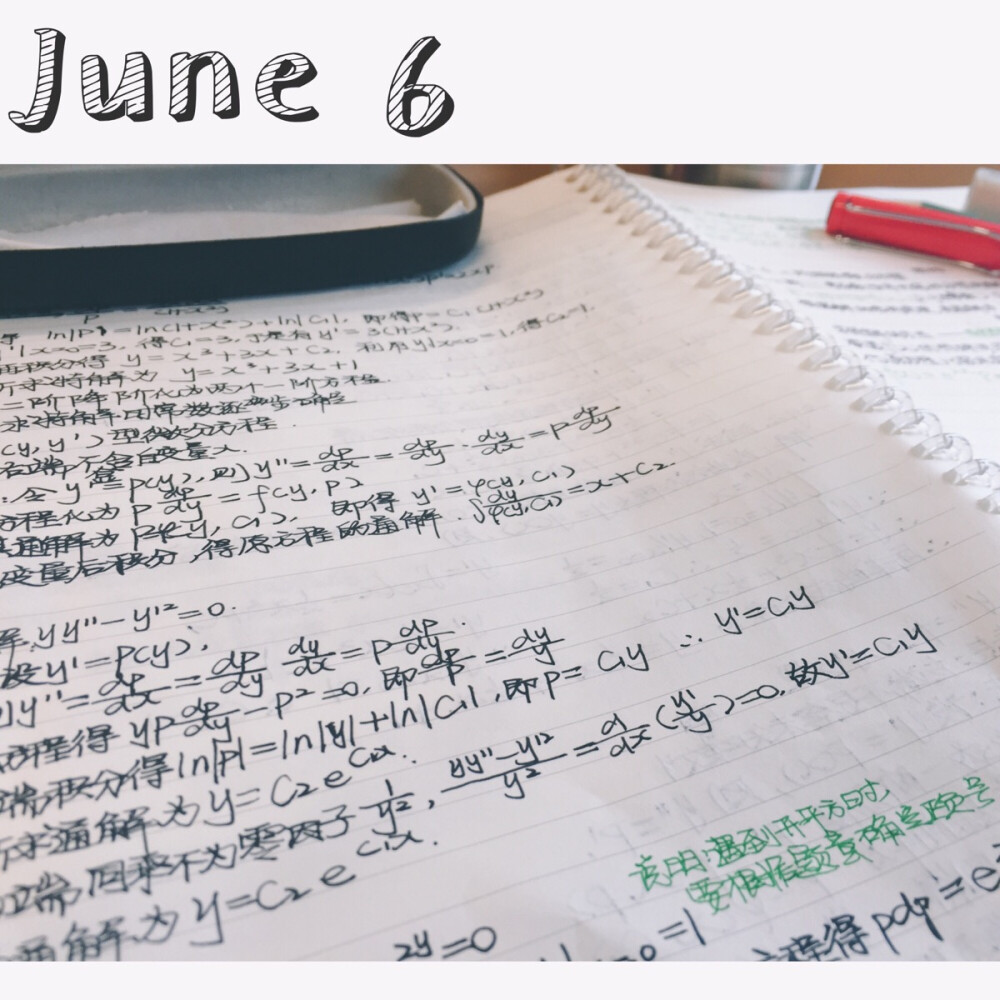 June 6
得 ln|P|=ln(1+x³)+ln|C₁|, 即得P=C₁(1+x²)
y'|x=0=3, 得C₁=3, 于是有 y'=3(1+x²).
再积分得 y=x³+3x+C₂, 利用y|x=0=1, 得C₂=1.
所求特解为 y=x³+3x+1
二阶降阶化为两个一阶方程.
求特解时
(y,y')型微分方程.
右端不含自变量x.
:令y'=p(y),则y''=dp/dx=dp/dy·dy/dx=p dp/dy
方程化为 p dp/dy=f(y,p)
其通解为P=φ(y,C₁), 即得 y'=φ(y,C₁)
变量后积分,得原方程的通解. ∫dy/φ(y,C₁)=x+C₂.
解.yy''-y'²=0.
设y'=p(y),
则y''=dp/dx=dp/dy dy/dx=p dp/dy.
方程得 yp dp/dy-p²=0, 即dp/p=dy/y
端积分得ln|p|=ln|y|+ln|C₁|,即p=C₁y ∴y'=C₁y
所求通解为y=C₂e^C₁x.
端同乘不为零因子1/y², (yy''-y'²)/y²=d/dx(y'/y)=0, 故y'=C₁y
通解为y=C₂e^C₁x.
说明:遇到开平方时,
要根据题意确定正负号
2y=0
=0=1
方程得pdp=e²